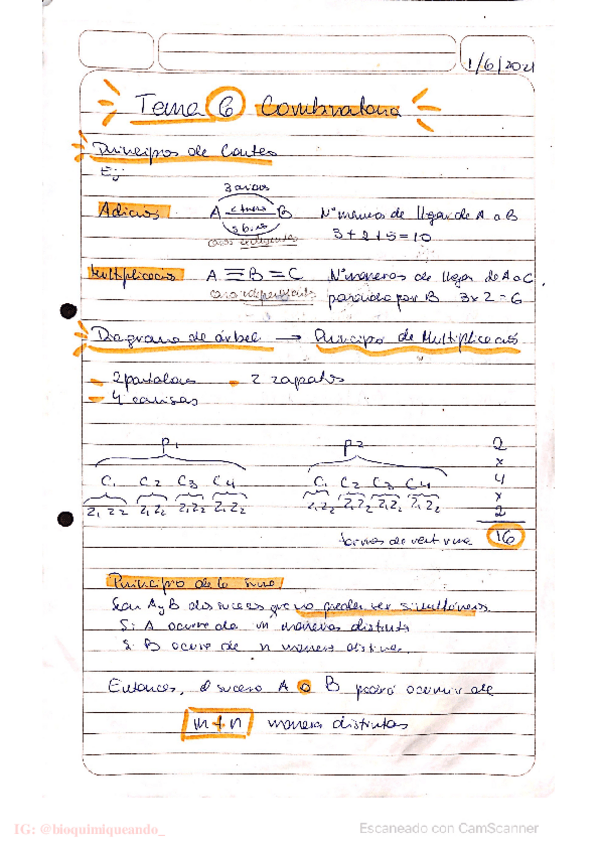 1/6/2021
Tema 6 Combinatoria
Principios de Conteo
Ej:
3 avions
Adicion A 2 trenes B Nº maneras de llegar de A a B
5 buses 3+2+5=10
Multiplicacion A ≡ B = C Nº maneras de llegar de A a C
pasando por B 3x2=6
Diagrama de árbol → Principio de Multiplicacion
- 2 pantalones - 2 zapatos
- 4 camisas
P1 P2 2
x
C1 C2 C3 C4 C1 C2 C3 C4 4
x
Z1 Z2 Z1 Z2 Z1 Z2 Z1 Z2 Z1 Z2 Z1 Z2 Z1 Z2 Z1 Z2 2
formas de vestirme 16
Principio de la suma
Sean A y B dos sucesos que no pueden ser simultáneos
Si A ocurre de m maneras distintas
Si B ocurre de n maneras distintas
Entonces, el suceso A o B podrá ocurrir de
m + n maneras distintas
IG: @bioquimiqueando_
Escaneado con CamScanner